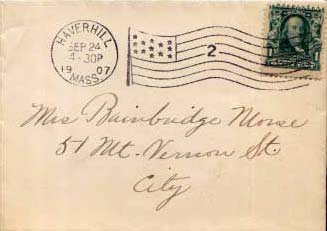 HAVERHILL
SEP 24
4-30P
1907
MASS.
2
Mrs Bainbridge Morse
51 Mt. Vernon St.
City